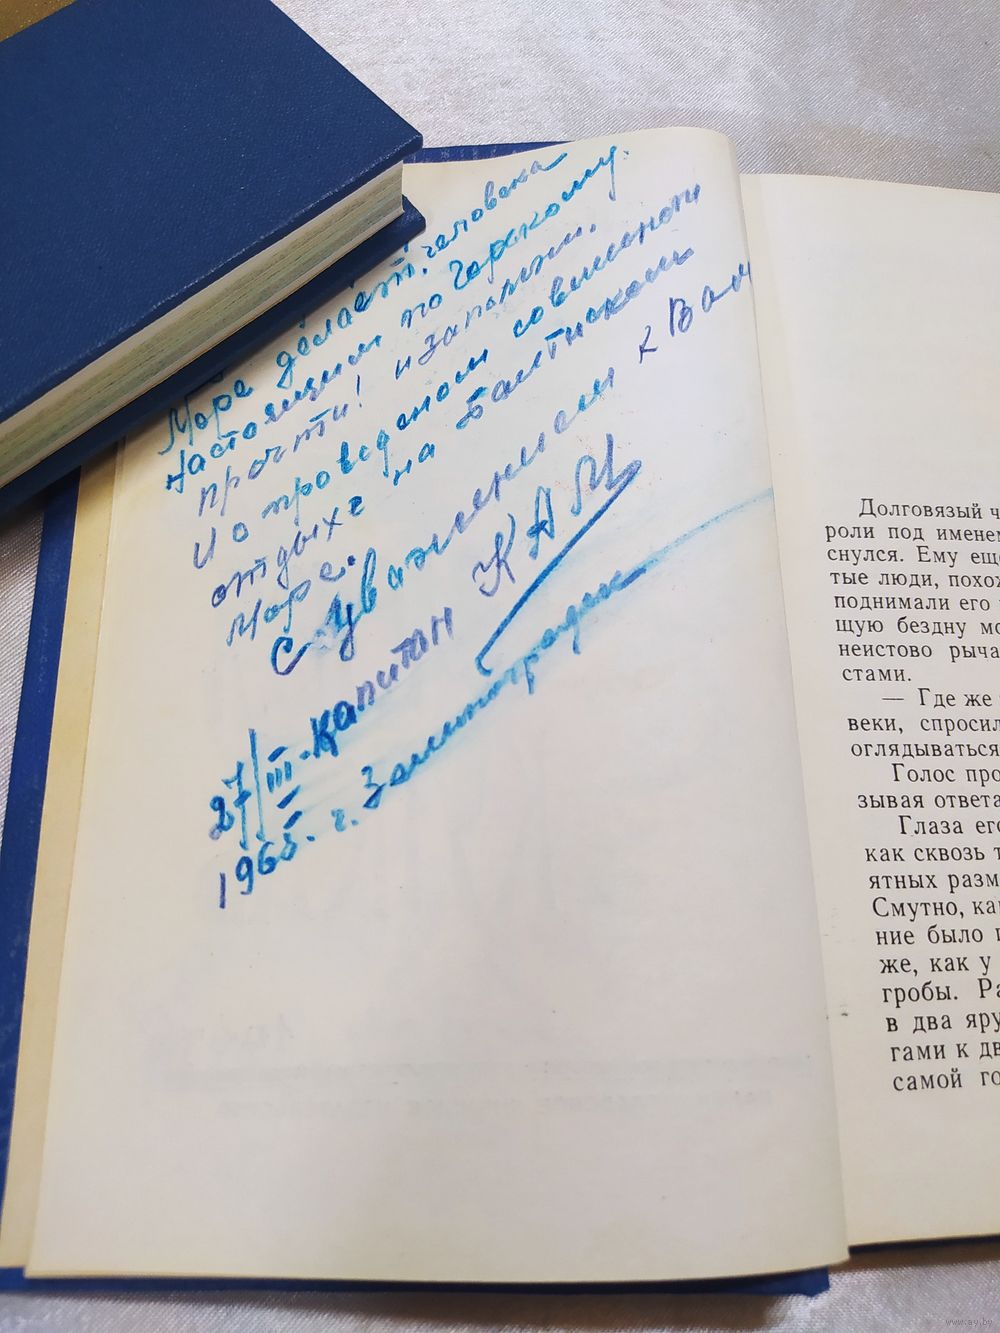 Море делает человека
настоящим по Горскому.
прочти! и запомни.
и о проведеном совместном
отдыхе на Балтиском
Море.
С уважением к Вам
Капитан КАМ
27/III-
1965. г. Зеленоградск
Долговязый ч
роли под именем
снулся. Ему ещё
тые люди, похож
поднимали его
щую бездну мо
неистово рыча
стами.
— Где же
веки, спросил
оглядываться
Голос про
зывая ответа
Глаза его
как сквозь т
ятных разм
Смутно, как
ние было п
же, как у
гробы. Ра
в два яру
гами к дв
самой го
www.ay.by